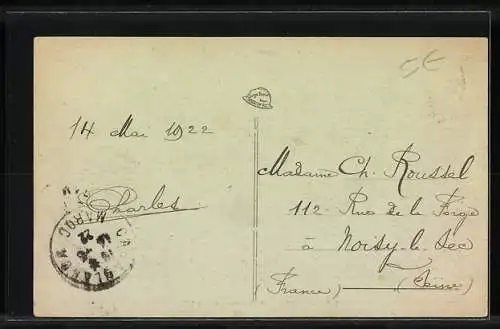 5E
14 Mai 1922
Charles
Madame Ch. Roussel
112 Rue de la Forge
à Noisy-le-Sec
(France) — (Seine)
MAROC
22